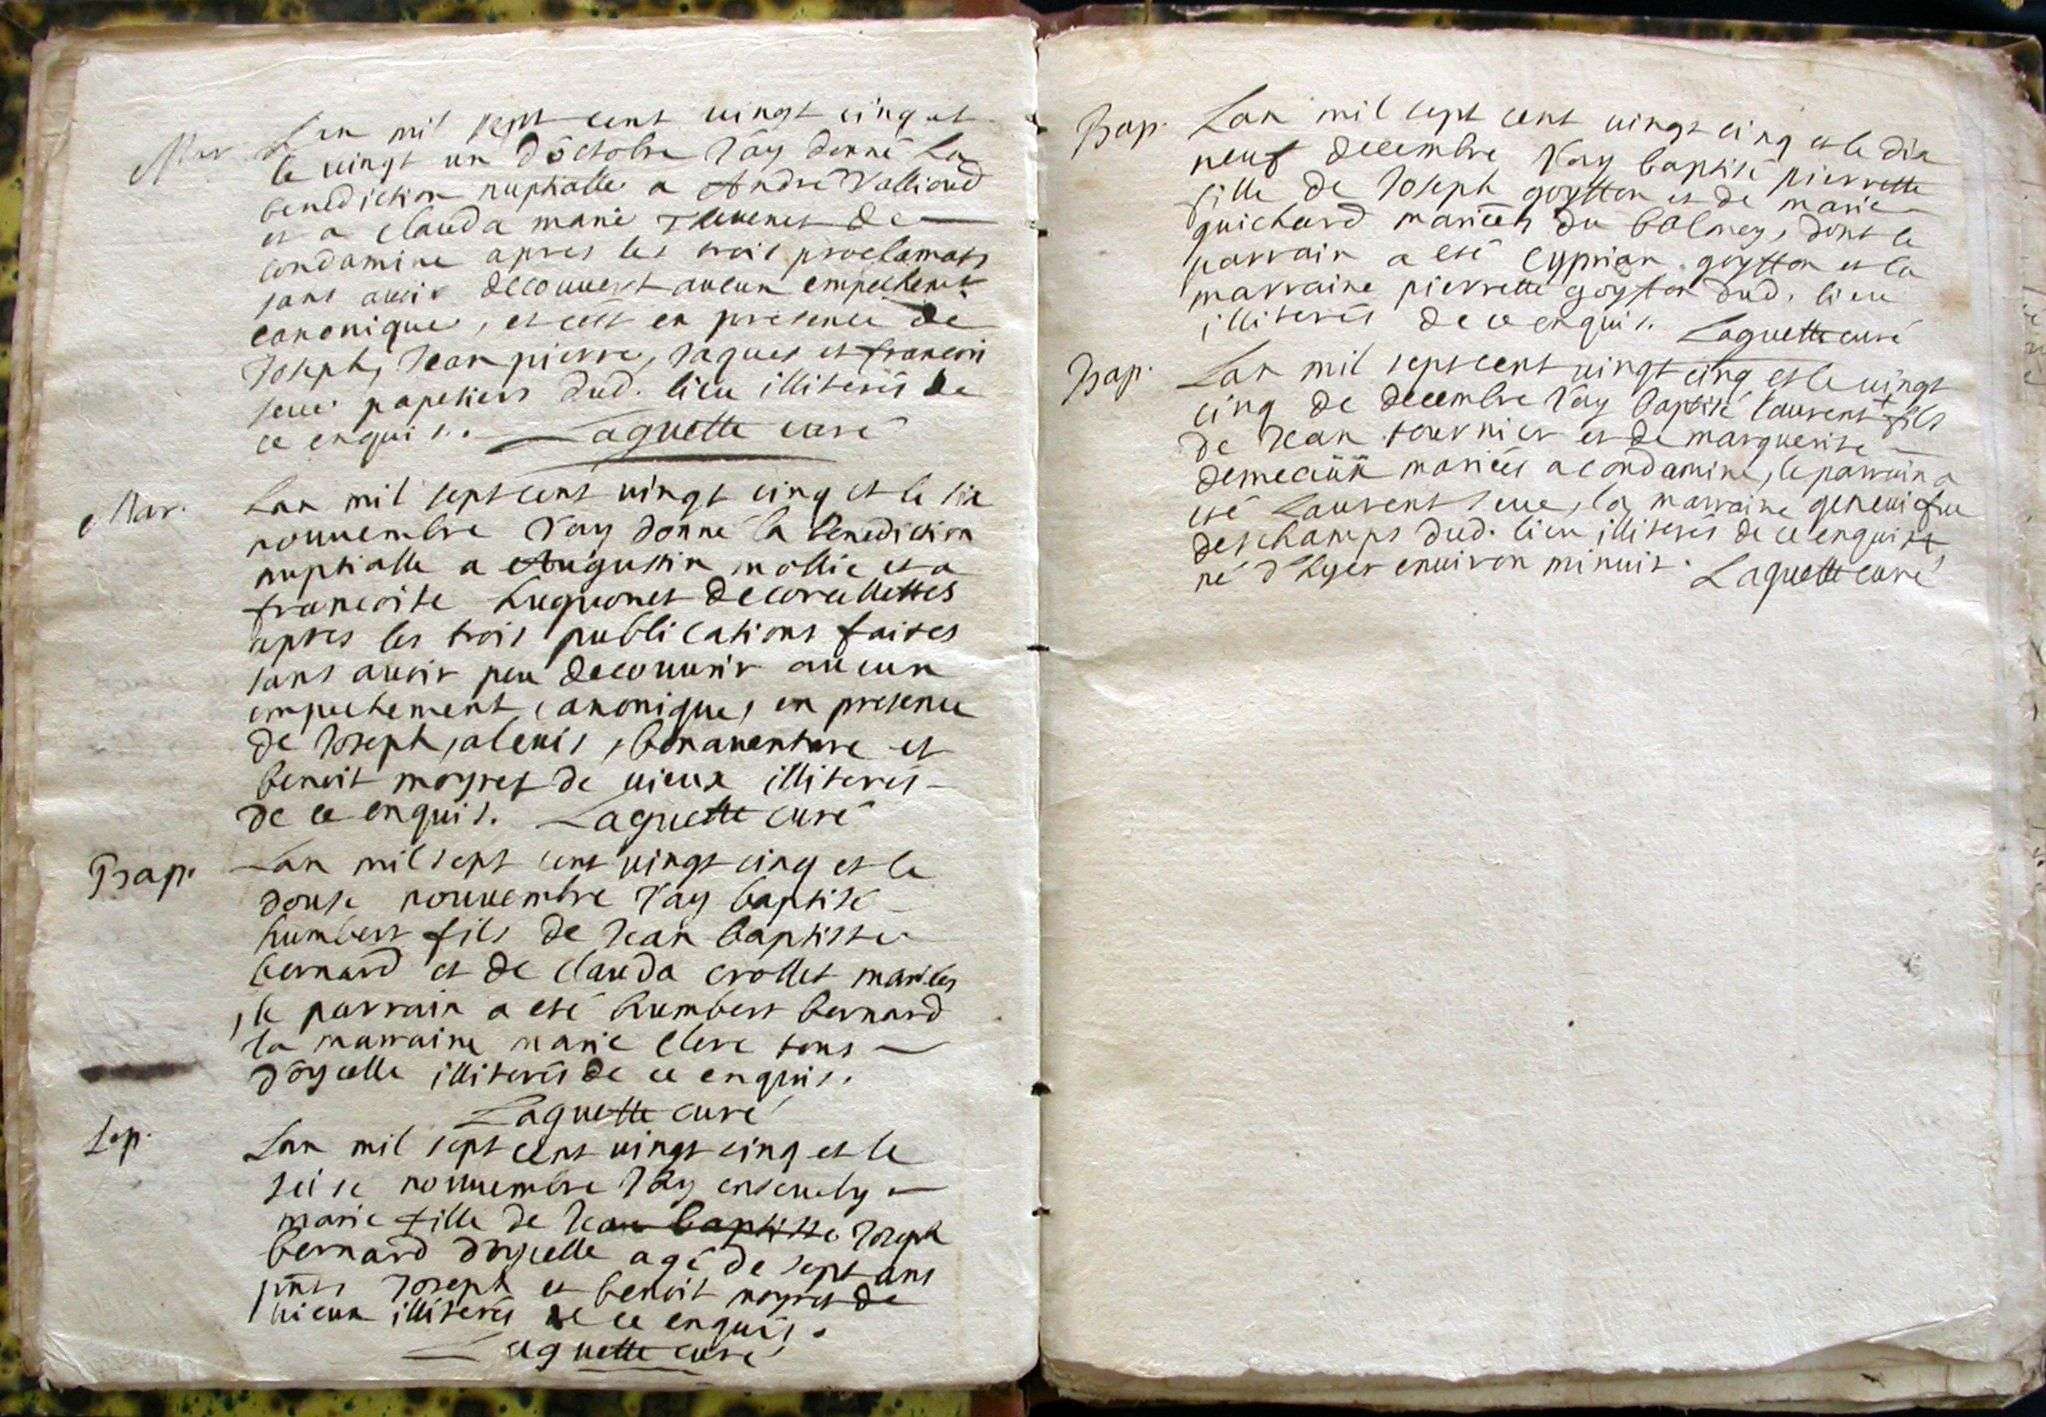 Mar. Lan mil sept cent vingt cinq et
le vingt un d'octobre Jay donné La
benediction nuptialle a André Vallioud
et a Clauda marie Thevenet de
condamine apres les trois proclamats
sans avoir decouvert aucun empechemt
canonique, et cest en presence de
Joseph, Jean pierre, Jaques et francois
seue papetiers dud. lieu illiterés de
ce enquis. Laguette curé
Mar. Lan mil sept cent vingt cinq et le six
novvembre Jay donné la benediction
nuptialle a Augustin mollie et a
francoise huguonet de corcellettes
apres les trois publications faites
sans avoir peu decouvrir aucun
empechement canonique, en presence
de Joseph, alexis, bonaventure et
benoit moyret de vieux illiterés
de ce enquis. Laguette curé
Bap. Lan mil sept cent vingt cinq et le
douse novvembre Jay baptisé
humbert fils de Jean baptiste
bernard et de clauda crollet mariées
, le parrain a eté humbert bernard
la marraine marie clerc tous
d'oyselle illiterés de ce enquis.
Laguette curé
Sep. Lan mil sept cent vingt cinq et le
seise novvembre Jay ensevely
marie fille de Jean baptiste Joseph
bernard d'oyselle agé de sept ans
pnts Joseph et benoit moyret de
vieux illiterés de ce enquis.
Laguette curé
Bap. Lan mil sept cent vingt cinq et le dix
neuf decembre Jay baptisé pierrette
fille de Joseph goytton et de marie
guichard mariées du balmey, dont le
parrain a esté cyprian goytton et la
marraine pierrette goytton dud. lieu
illiterés de ce enquis. Laguette curé
Bap. Lan mil sept cent vingt cinq et le vingt
cinq de decembre Jay baptisé laurent + fils
de Jean tournier et de marguerite
mariées a condamine, le parrain a
eté Laurent seue, la marraine genevifve
deschamps dud. lieu illiterés de ce enquis
né d'hyer environ minuit. Laguette curé